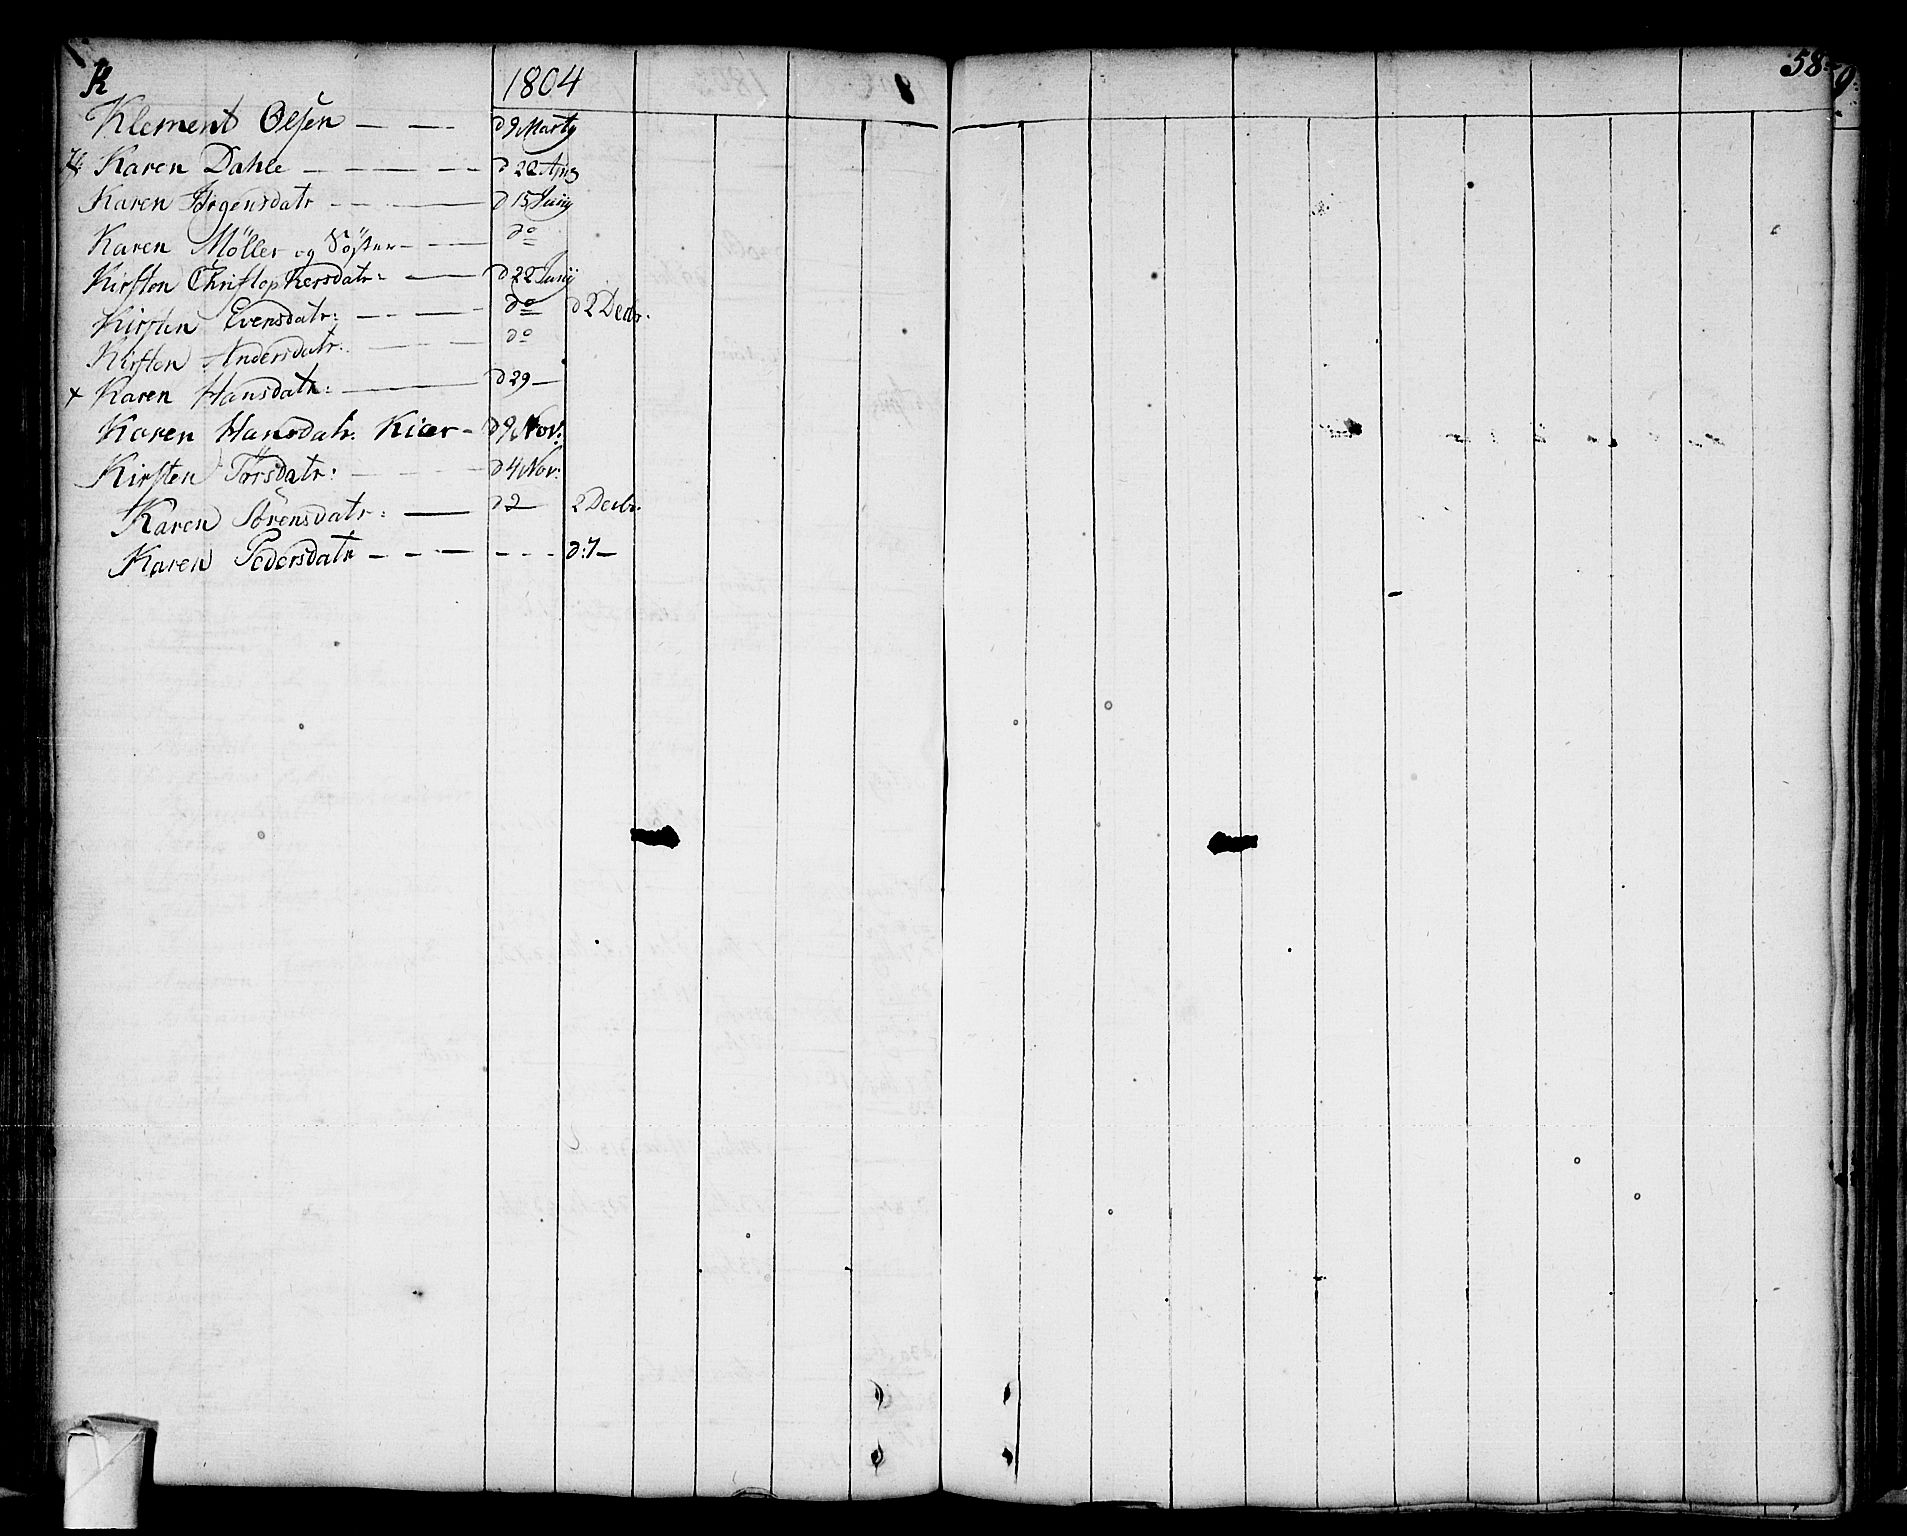 K 1804 58
Klement Olsen — — d 9 Marty
Karen Dahle — — — — d 22 Aprs
Karen Jörgensdatr — — — d 15 Junij
Karen Møller og Söster — — do
Kirsten Christophersdatr: — — d 22 Junij
Kirsten Evensdatr: — — — do d 2 Decbr.
Kirsten Andersdatr. — — — do
x Karen Hansdatr: — — d 29 —
Karen Hansdatr. Kiær - d 9 Nov:
Kirsten Torsdatr: — — — d 4 Nov:
Karen Sörensdatr: — — d 2 — 2 Decbr.
Karen Pedersdatr — — — - - - d: 7 —